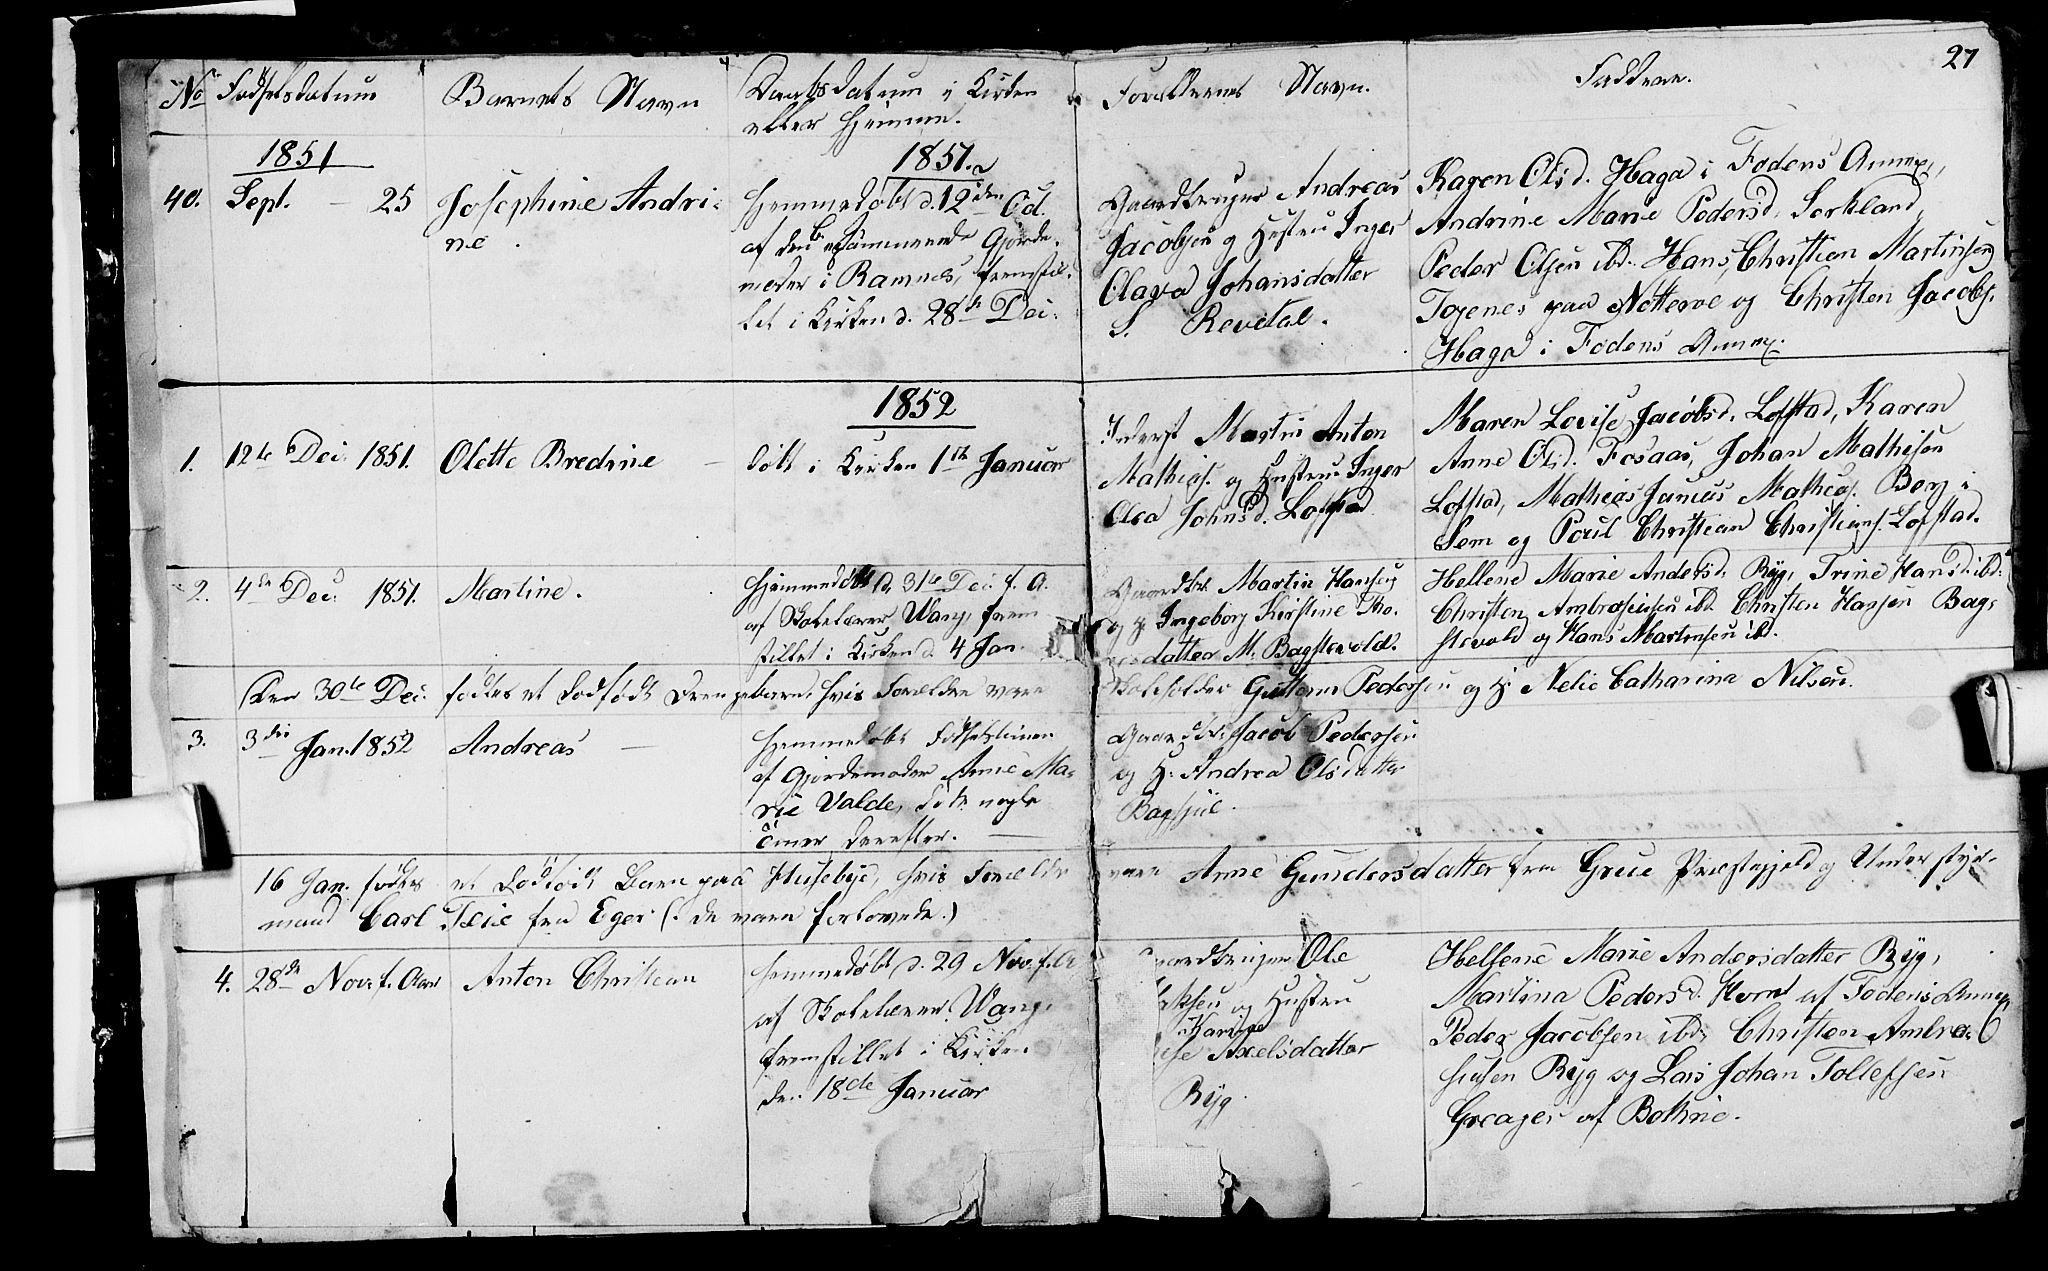 27
No Fødselsdatum Barnets Navn Daabsdatum i Kirken Forældrenes Navn. Faddere.
eller hjemme.
1851 1851.
40. Sept. – 25 Josephine Andri-
ne.
Hjemmedøbt d. 12 den Oct.
af den
moder i Ramnæs, fremstil-
let i Kirken d. 28de Dec.
Gaardbruger Andreas
Jacobsen og Hustru Inger
Olava Johansdatter
S. Revetal.
Karen Olsd. Haga i Fodens Annex,
Andrine Marie Pedersd. Sørkland,
Peder Olsen ibd. Hans Christian Martinsen
paa Nøtterøe og Christen Jacobs.
Haga i Fodens Annex.
1852
1. 12te Dec. 1851. Olette Bredine –
døbt i Kirken 1ste Januar
Inderst Martin Anton
Mathias. og Hustru Inger
Olea Johnsd. Lofstad
Maren Lovise Jacobsd. Lofstad, Karen
Anne Olsd. Fosaas, Johan Mathisen
Lofstad, Mathias Mathias. Berg i
Sem og Poul Christian Christians. Lofstad.
2. 4de Dec. 1851. Martine.
Hjemmedøbt d. 31te Dec. f. A.
af Skolelærer Wang, frem
stillet i Kirken d. 4 Jan.
Gaardbr. Martin Hansen
og H. Ingeborg Kirstine Tho-
datter M. Bagstevold.
Hellene Marie Andersd. Ryg, Trine Hansd. ibd.
Christen Ambrosiusen ibd. Christen Hansen Bag-
stevold og Hans Martinsen ibd.
Den 30te Dec. fødtes et dødfødt Drengebarn, hvis Forældre vare Skoleholder Gustav Pedersen og H. Nelie Catharina Nilsen.
3. 3die Jan. 1852 Andreas –
Hjemmedøbt Fødselstimen
af Gjordemoder Anne Ma-
rie Valde, døde nogle
Timer derefter. –
Gaardbr. Jacob Pedersen
og H. Andrea Olsdatter
16 Jan. fødtes et dødfødt Barn paa Husebye, hvis Forældre vare Anne Gundersdatter fra Grue Præstegjeld og Understyr-
mand Carl Teie fra Eger (: de vare forlovede.)
4. 28de Nov. f. Aar Anton Christian
Hjemmedøbt d. 29 Nov. f. A
af Skolelærer Wang,
fremstillet i Kirken
den 18de Januar
Gaardbruger Ole
og Hustru
Karine
Axelsdatter
Ryg.
Hellene Marie Andersdatter Ryg,
Martina Pedersd. Horn af Fodens Annex
Peder Jacobsen ibd. Christen Ambro-
siusen Ryg og Lars Johan Tollefsen
af Bothne.